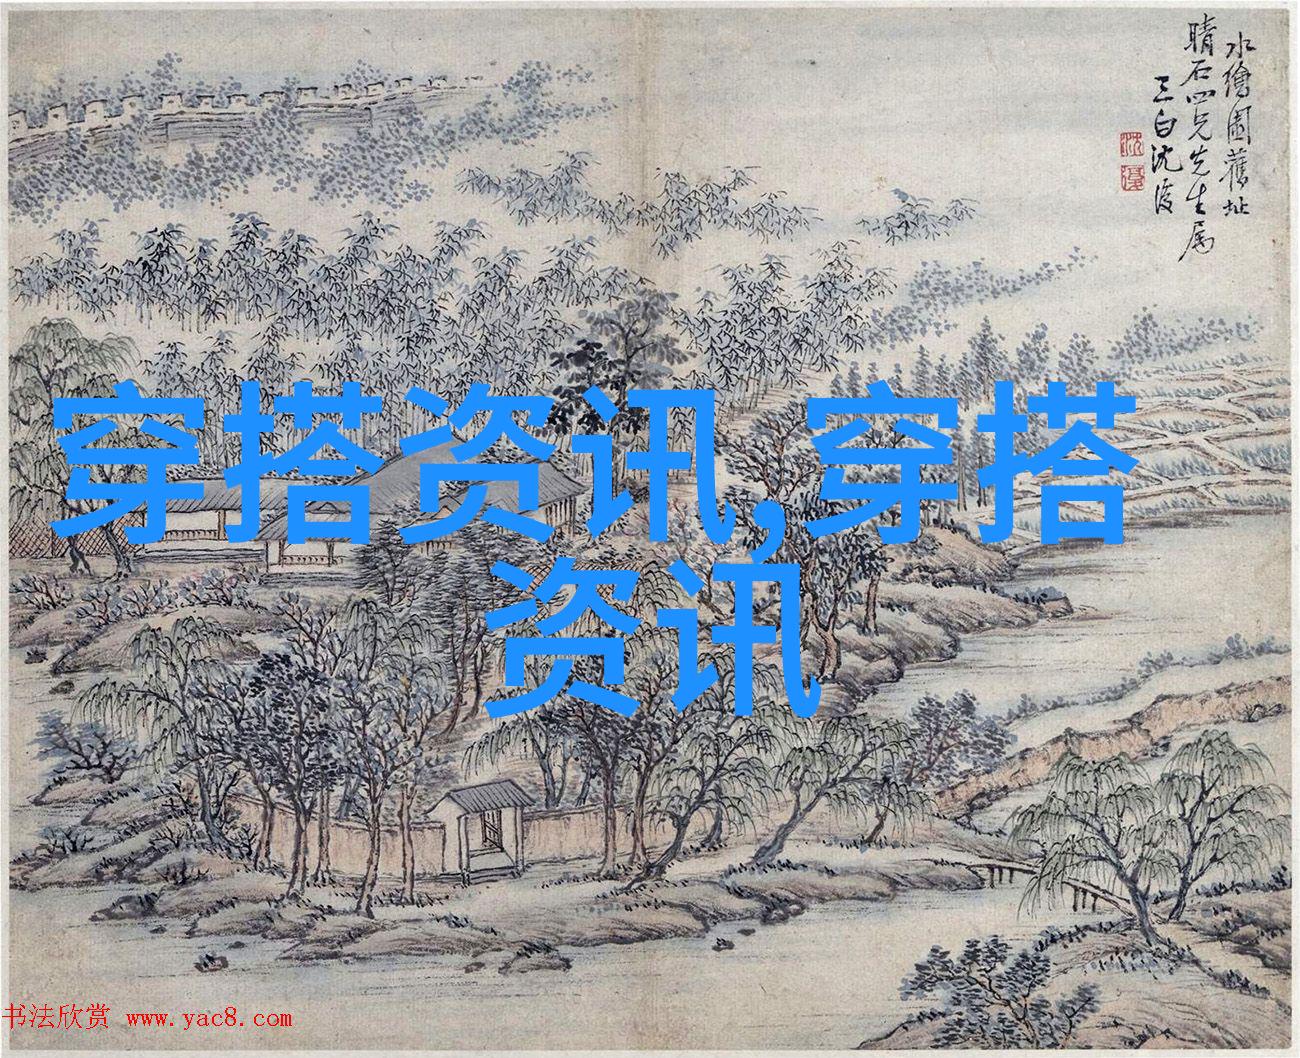 水繪園舊址
晴石四兄先生属
三白沈復
沈
復
穿搭资讯,穿搭
资讯
书法欣赏 www.yac8.com